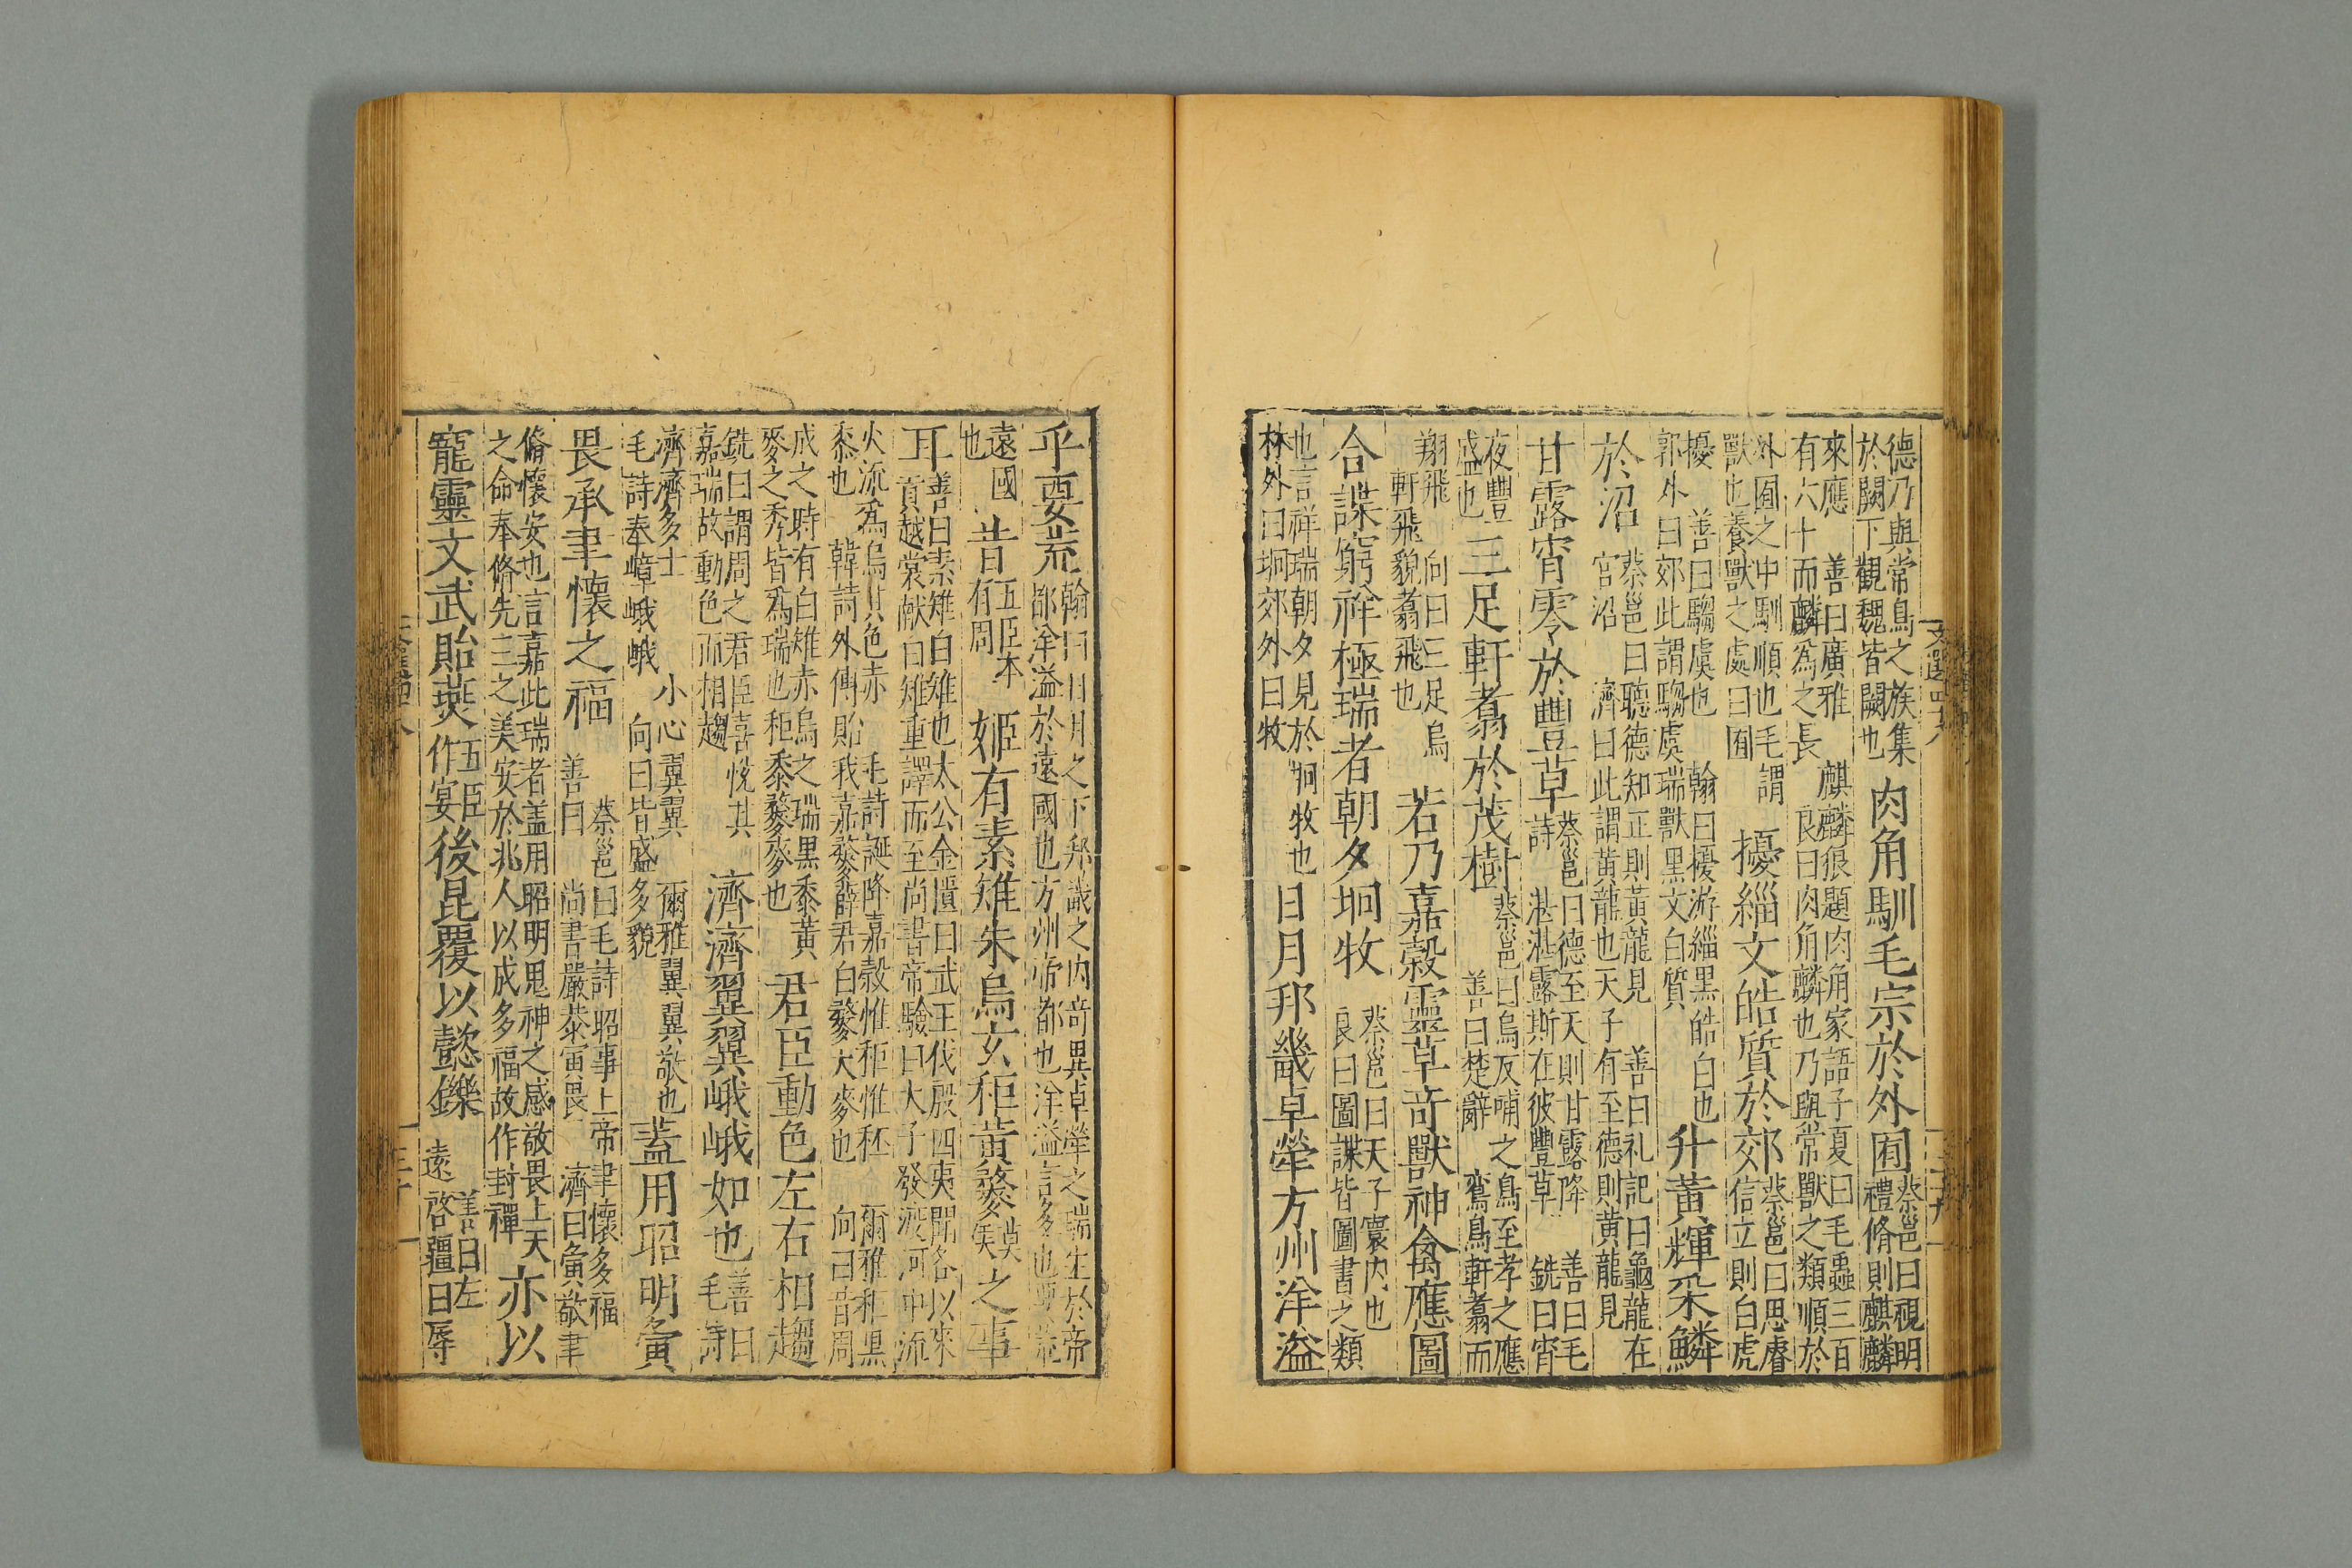 德乃與常鳥之族集
於闕下觀魏皆闕也
肉角馴毛宗於外囿
蔡邕曰視明
禮脩則麒麟
來應 善曰廣雅 麒麟狼題肉角家語子夏曰毛蟲三百
有六十而麟爲之長 良曰肉角麟也乃與常獸之類順於
外囿之中馴順也毛謂
獸也養獸之處曰囿
擾緇文皓質於郊
蔡邕曰思睿
信立則白虎
擾 善曰騶虞也 翰曰擾游緇黑皓白也
郭外曰郊此謂騶虞瑞獸黑文白質
升黃輝采鱗
於沼
蔡邕曰聽德知正則黃龍見 善曰礼記曰龜龍在
宮沼 濟曰此謂黃龍也天子有至德則黃龍見
甘露宵零於豐草
蔡邕曰德至天則甘露降 善曰毛
詩 湛湛露斯在彼豐草 銑曰宵
夜豐
盛也
三足軒翥於茂樹
蔡邕曰烏反哺之鳥至孝之應
善曰楚辭 鸞鳥軒翥而
翔飛 向曰三足烏
軒飛貌翥飛也
若乃嘉穀靈草奇獸神禽應圖
合諜窮祥極瑞者朝夕坰牧
蔡邕曰天子寰内也
良曰圖諜皆圖書之類
也言祥瑞朝夕見於坰牧也
林外曰坰郊外曰牧
日月邦畿卓犖方州洋溢
乎要荒
翰曰日月之下邦畿之内奇異卓犖之瑞生於帝
都洋溢於遠國也方州帝都也洋溢言多也要荒
遠國
也
昔
五臣本
有周
姬有素雉朱烏玄秬黃䅘
莫
矣
之事
耳
善曰素雉白雉也太公金匱曰武王伐殷四夷聞各以來
貢越裳献白雉重譯而至尚書帝驗曰太子發渡河中流
火流爲烏其色赤 毛詩誕降嘉穀惟秬惟秠 爾雅秬黑
黍也 韓詩外傳貽我嘉䅘薛君曰䅘大麥也 向曰昔周
成之時有白雉赤烏之瑞黑黍黃
麥之秀皆爲瑞也秬黍䅘麥也
君臣動色左右相趨
銑曰謂周之君臣喜悅其
嘉瑞故動色而相趨
濟濟翼翼峨峨如也
善曰
毛詩
濟濟多士 小心翼翼 爾雅翼翼敬也
毛詩奉嶂峨峨 向曰皆盛多貌
蓋用昭明寅
畏承聿懷之福
蔡邕曰毛詩昭事上帝聿懷多福
善曰 尚書嚴恭寅畏 濟曰寅敬聿
脩懷安也言嘉此瑞者盖用昭明鬼神之感敬畏上天
之命奉脩先王之美安於兆人以成多福故作封禪
亦以
寵靈文武貽燕
五臣
作宴
後昆覆以懿鑠
善曰左
遠啓疆曰辱